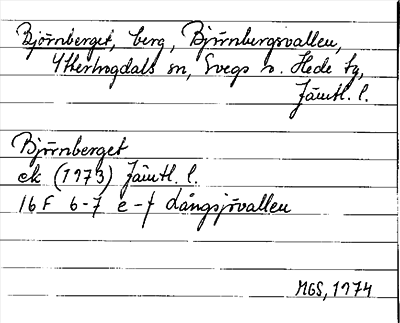 Björnberget, berg, Björnbergsvallen,
Ytterhogdals sn, Svegs o. Hede tg,
Jämtl. l.
Björnberget
ek (1973) Jämtl. l.
16 F 6-7 e-f Långsjövallen
MGS, 1974